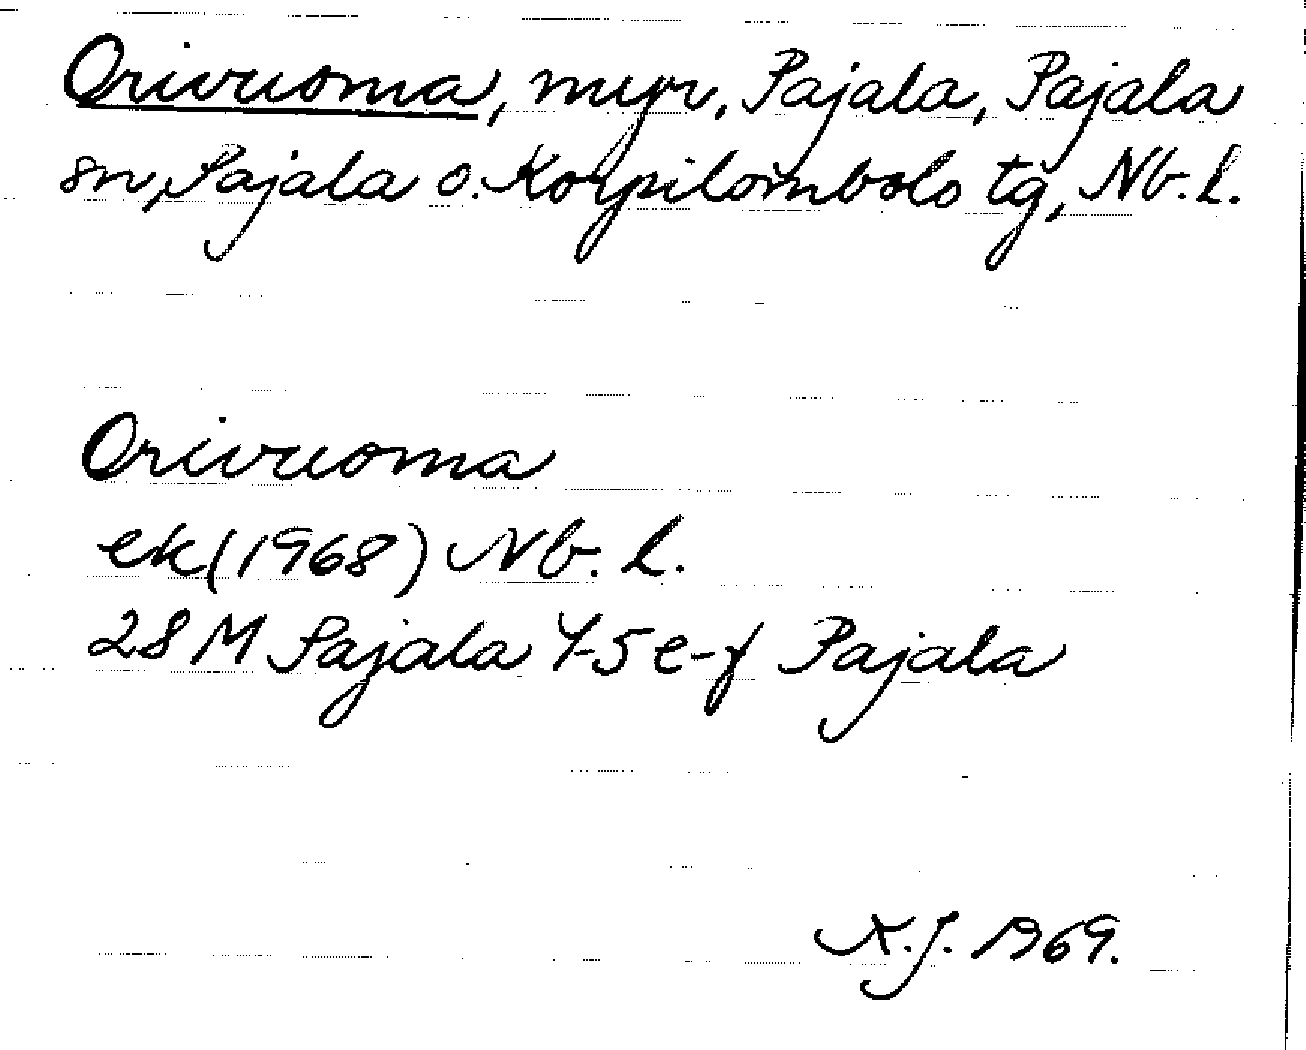 Orivuoma, myr, Pajala, Pajala
sn, Pajala o. Korpilombolo tg, Nb. l.
Orivuoma
ek (1968) Nb. l.
28 M Pajala 4-5 e-f Pajala
K.J. 1969.